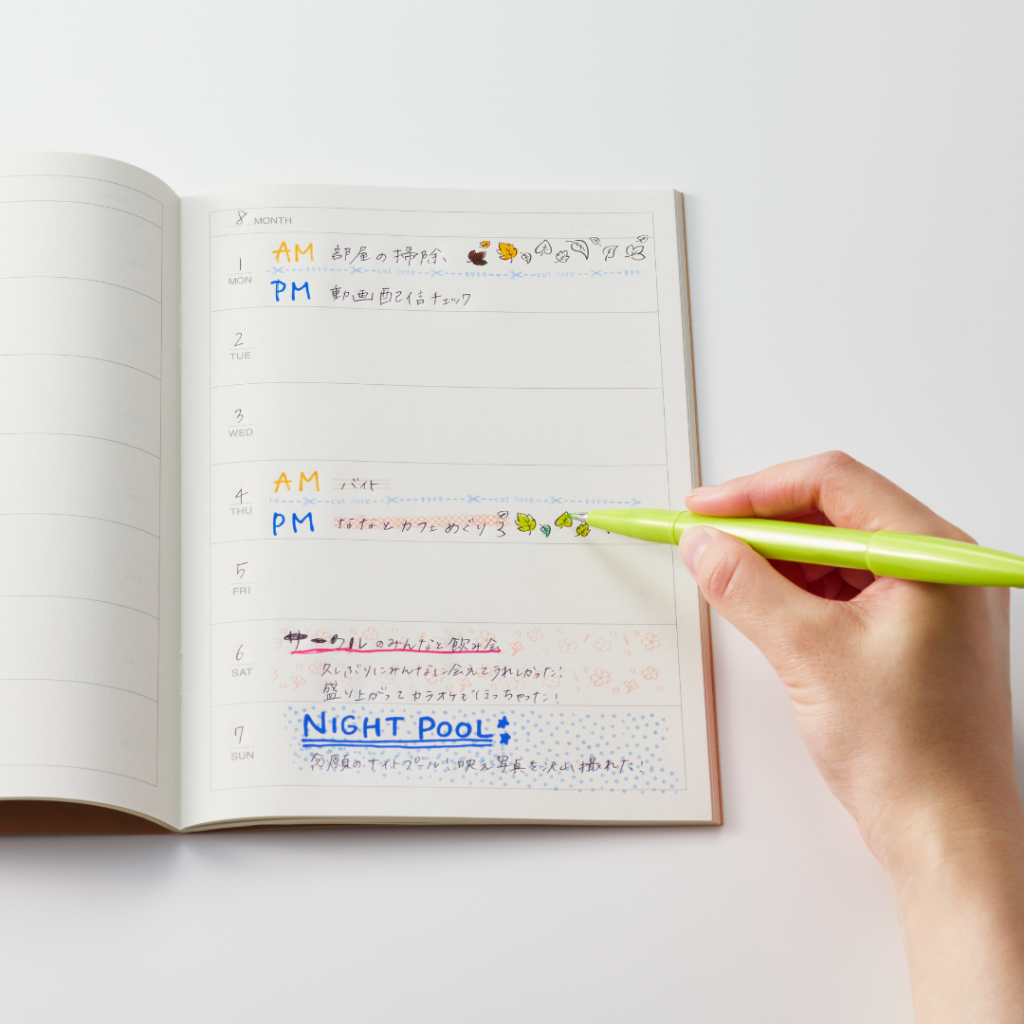 8 MONTH
1 MON
AM 部屋の掃除、
cut here キリトリ cut here キリトリ
PM 動画配信チェック
2 TUE
3 WED
4 THU
AM バイト
cut here キリトリ cut here キリトリ
PM ななとカフェめぐり
5 FRI
6 SAT
サークルのみんなと飲み会
久しぶりにみんなに会えてうれしかった!
盛り上がってカラオケまで行っちゃった!
7 SUN
NIGHT POOL
念願のナイトプール!映え写真を沢山撮れた!